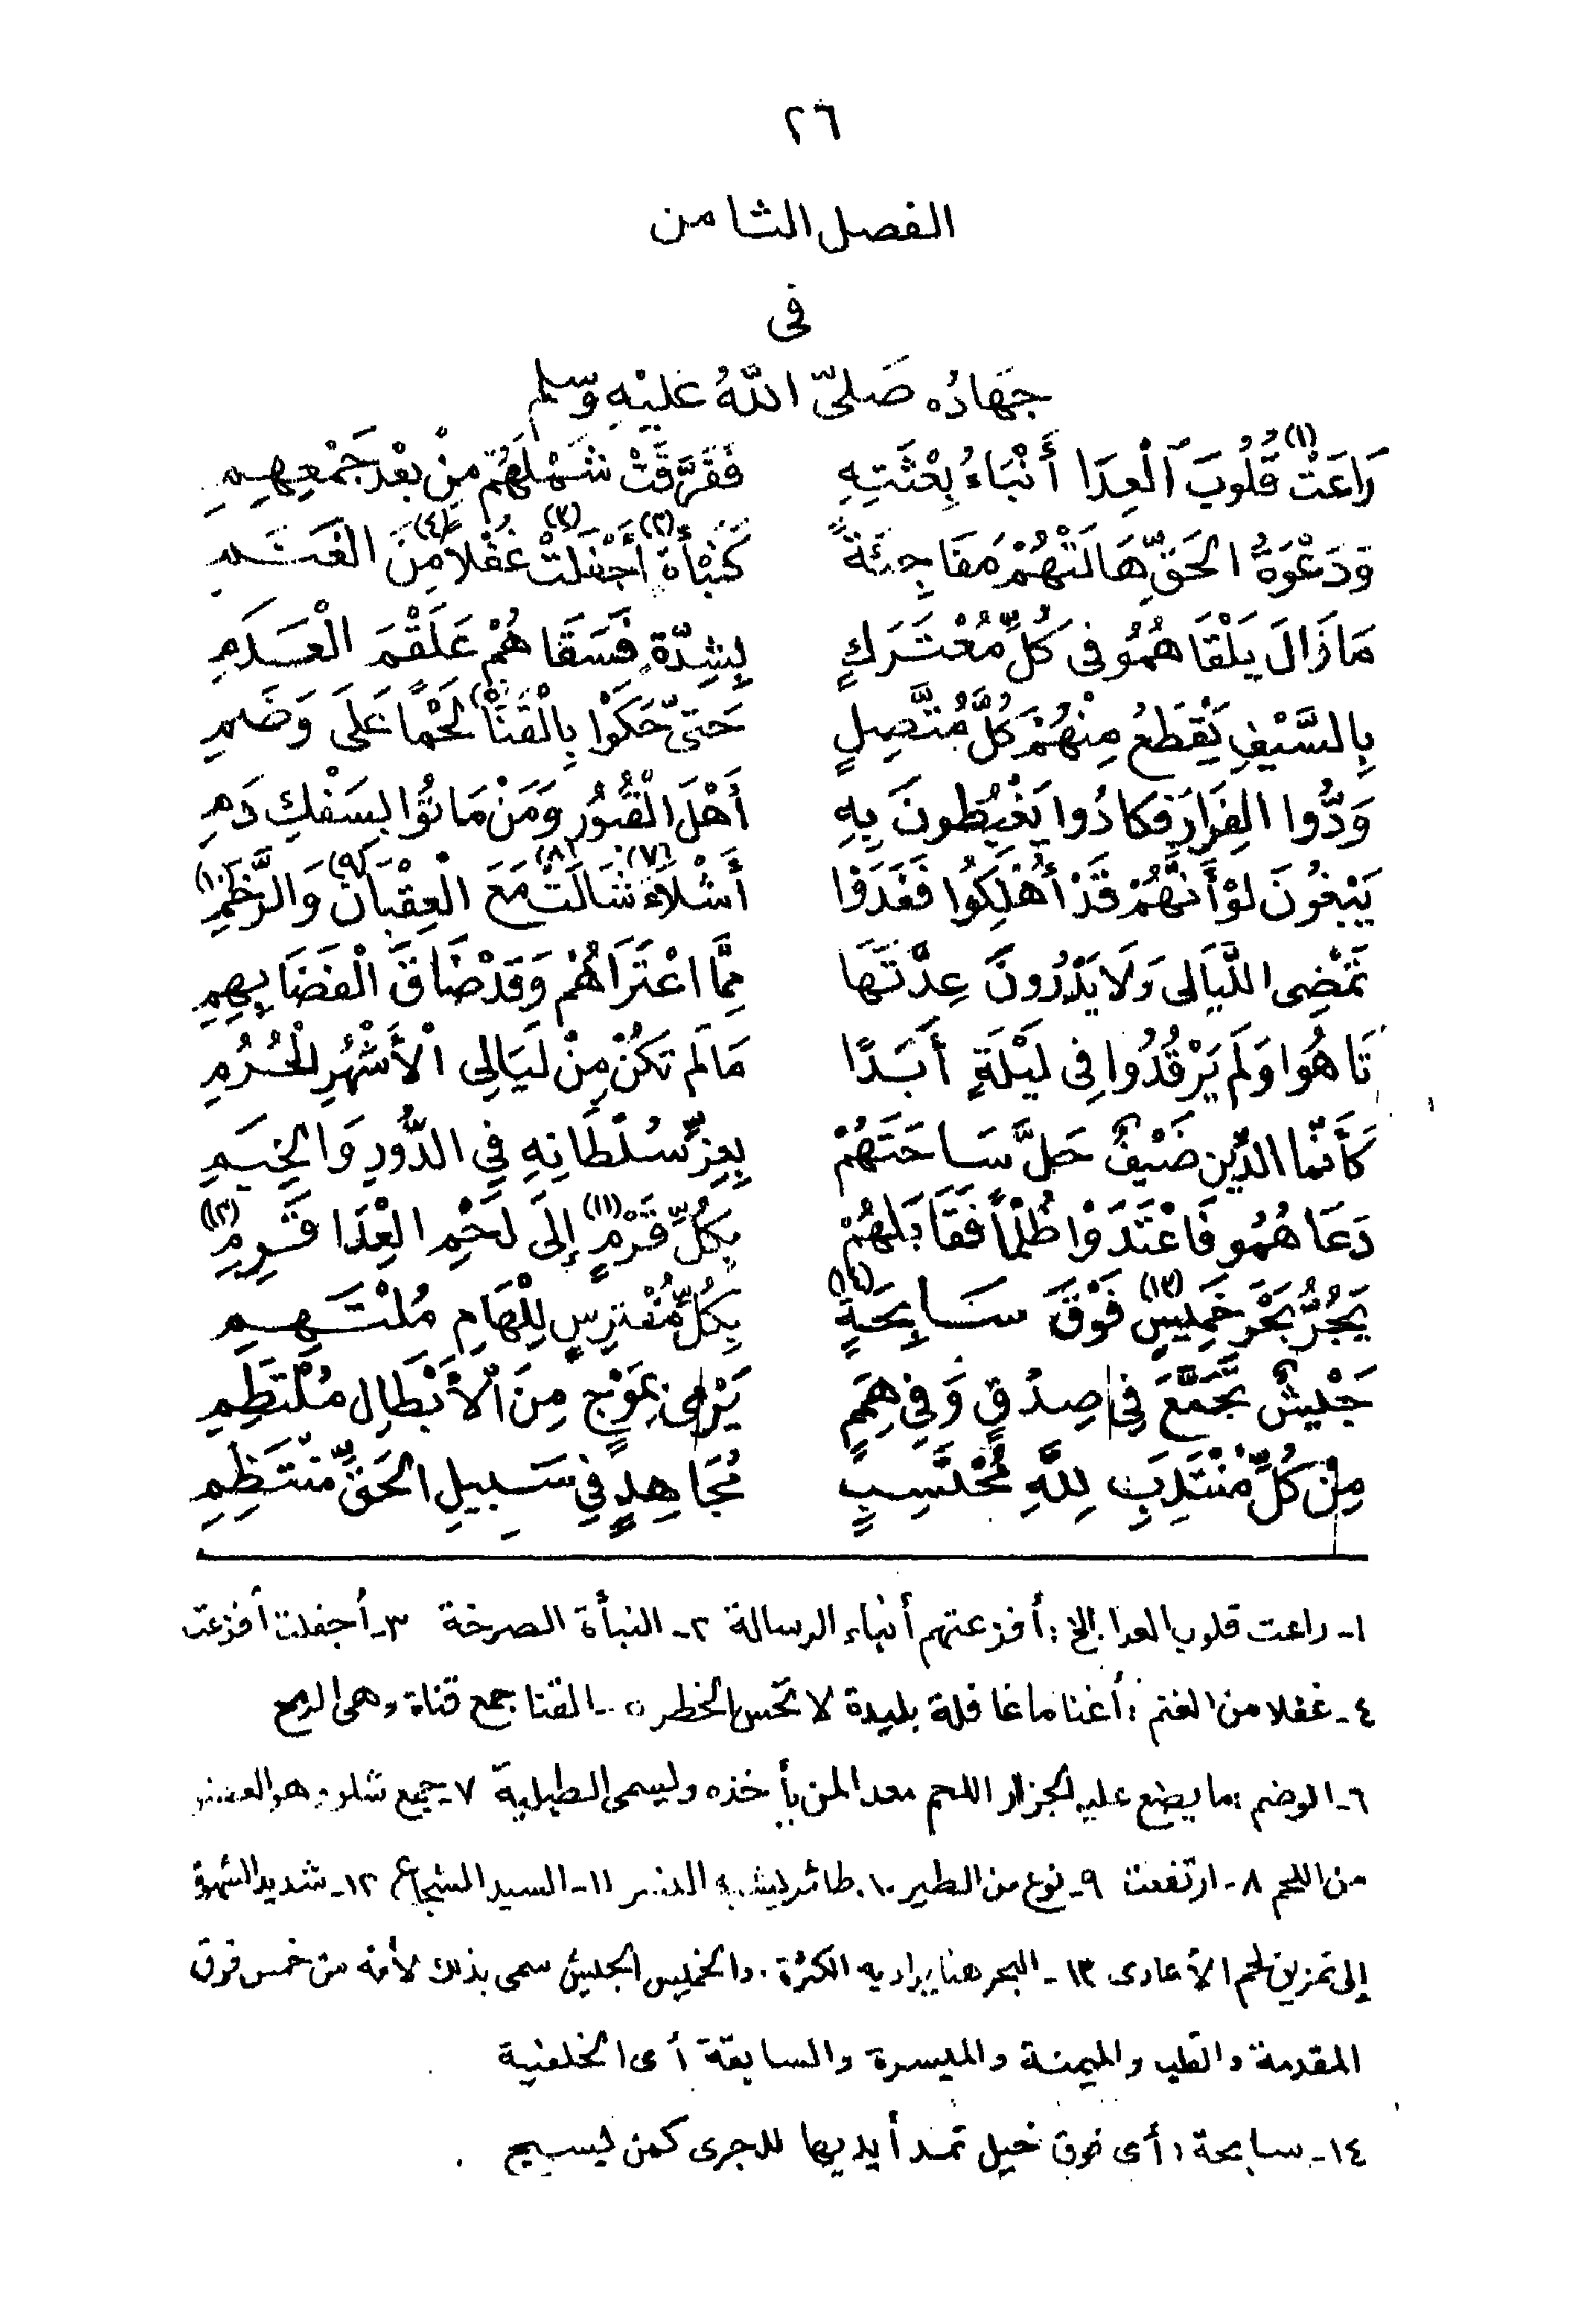 ٢٦
الفصل الثامن
فى
جِهَادُه صَلىّ اللهُ عَليْهِ وَسّلم
رَاعَتْ (١) قُلُوبَ الْعِدَا أَنْبَاءُ بِعْثَتِهِ فَفَرَّقَتْ شَمْلَهُمْ مِنْ بَعْدِ جَمْعِهِمِ
وَدَعْوَةُ الحَقِّ هَالَتْهُمْ مَفَاجِئَةً كَنَبْأَةٍ (٢) أَجْفَلَتْ (٣) غُفْلاً (٤) مِنَ الغَنَمِ
مَا زَالَ يَلْقَاهُمُو فى كُلِّ مُعْتَرَكٍ بِشِدّةٍ فَسَقَاهُمْ عَلَقْمَ الْعَدَمِ
بِالسَّيْفِ يَقْطَعُ مِنْهُمْ كُلَّ مُتَّصِلٍ حَتىّ حَكَوْا بِالْقَنَا لَحْمًا عَلَى وَضَمِ
وَدُّوا الفِرَارَ فكادُوا يَغْبِطونَ بِهِ أَهْلَ الْقُبُورِ وَمَنْ مَاتُوا بِسَفْكِ دَمِ
يَبْغُونَ لوْ أَنَّهُمْ قَدْ أُهْلِكُوا فَغَدَوْا أَشْلاَءَ (٧) شَالَتْ (٨) مَعَ الْعِقْبَانِ (٩) وَالرَّخَمِ (١٠)
تَمْضِى اللَّيَالى وَلَا يَدْرُونَ عِدَّتَهَا مِمَّا اعْتَرَاهُمْ وَقَدْ ضَاقَ الْفَضَا بِهِمِ
تَاهُوَا وَلَم يَرْقُدُوا فِى لَيْلَةٍ أَبَدًا مَا لَم تَكُنْ مِنْ لَيَالِى الْأَشْهُرِ الْحُرُمِ
كَأَنّمَا الدِّين ضَيْفٌ حَلَّ سَاحَتَهُمْ بِعِزِّ سُلْطَانِهِ فِي الدُّورِ وَالخِيَمِ
دَعَاهُمُو فَاعْتَدَوْا ظُلْمًا فَقَابَلَهُمْ بِكُلِّ قَرْمٍ (١١) إِلَى لَحْمِ العِدَا قَرِمِ (١٢)
يَجُرُّ بَحْرَ خَمِيسٍ (١٣) فَوْقَ سَابِحَةٍ (١٤) بِكُلِّ مُفْتَرِسٍ لِلْهَامِ مُلْتَهِمِ
جَيْشٌ تَجَمَّعَ فِى صِدْقٍ وَفِي هِمَمٍ يَرْمِى بِمَوْجٍ مِنَ الْأَبْطَالِ مُلْتَطِمِ
مِنْ كُلِّ مُنْتَدِبٍ لِلَّهِ مُحْتَسِبٍ مُجَاهِدٍ فِي سَبِيلِ الحَقِّ مُنْتَظِمِ
١- راعت قلوب العدا الخ : أفزعتهم أنباء الرسالة ٢- النبأة الصرخة ٣- أجفلت أفزعت
٤- غفلا من الغنم : أغناما غافلة بليدة لا تحس الخطر ٥- القنا جمع قناة وهى الرمح
٦- الوضم : ما يضع عليه الجزار اللحم معدا لمن يأخذه ويسمى الطبلية ٧- جمع شلو وهو العضو
من اللحم ٨- ارتفعت ٩- نوع من الطير ١٠- طائر يشبه النسر ١١- السيد الشجاع ١٢- شديد الشهوة
إلى تمزيق لحم الأعادى ١٣- البحر هنا يراد به الكثرة . والخميس الجيش سمى بذلك لأنه من خمس فرق
المقدمة والقلب والميمنة والميسرة والساقة أى الخلفية
١٤- سابحة : أى فوق خيل تمد أيديها للجرى كمن يسبح .